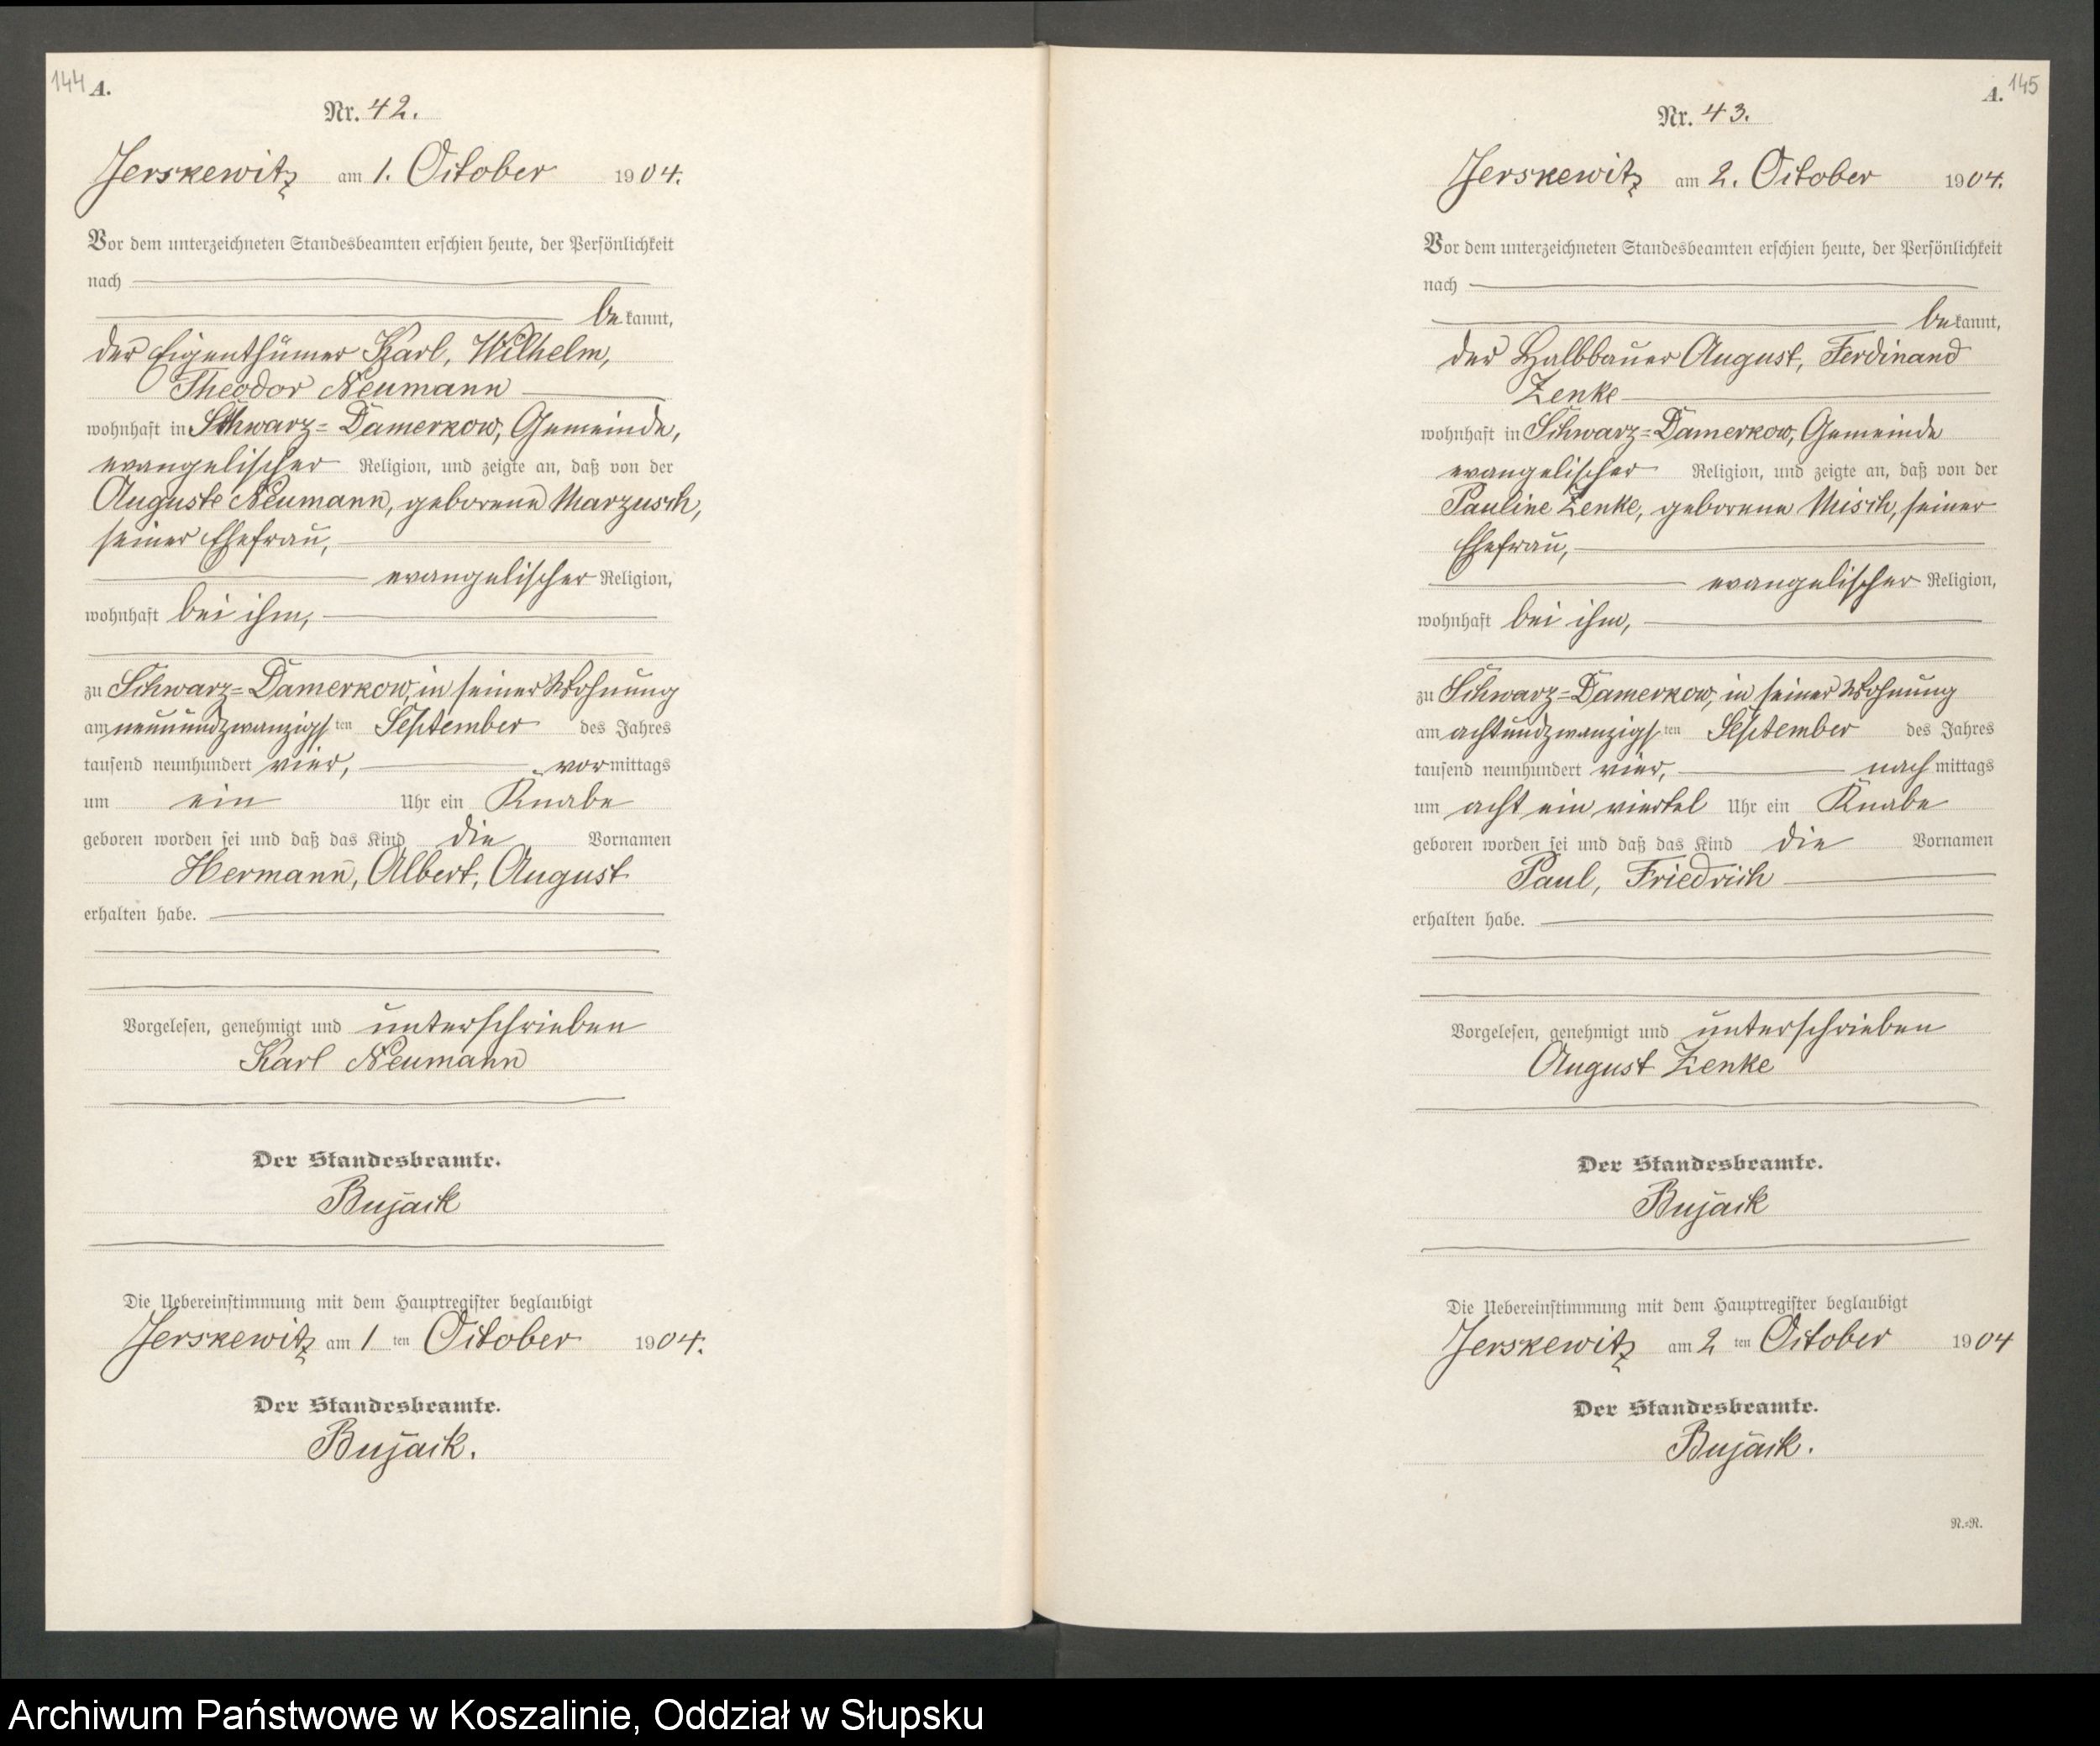 144 A.
Nr. 42.
Jerskewitz am 1. October 1904.
Vor dem unterzeichneten Standesbeamten erschien heute, der Persönlichkeit
nach
bekannt,
der Eigenthümer Karl, Wilhelm,
Theodor Neumann
wohnhaft in Schwarz=Damerkow, Gemeinde,
evangelischer Religion, und zeigte an, daß von der
Auguste Neumann, geborene Marzusch,
seiner Ehefrau,
evangelischer Religion,
wohnhaft bei ihm,
zu Schwarz=Damerkow, in seiner Wohnung
am neunundzwanzigsten September des Jahres
tausend neunhundert vier, vormittags
um ein Uhr ein Knabe
geboren worden sei und daß das Kind die Vornamen
Hermann, Albert, August
erhalten habe.
Vorgelesen, genehmigt und unterschrieben
Karl Neumann
Der Standesbeamte.
Bujack
Die Uebereinstimmung mit dem Hauptregister beglaubigt
Jerskewitz am 1 ten October 1904.
Der Standesbeamte.
Bujack.
A. 145
Nr. 43.
Jerskewitz am 2. October 1904.
Vor dem unterzeichneten Standesbeamten erschien heute, der Persönlichkeit
nach
bekannt,
der Halbbauer August, Ferdinand
Zenke
wohnhaft in Schwarz=Damerkow, Gemeinde
evangelischer Religion, und zeigte an, daß von der
Pauline Zenke, geborene Misch, seiner
Ehefrau,
evangelischer Religion,
wohnhaft bei ihm,
zu Schwarz=Damerkow, in seiner Wohnung
am achtundzwanzigsten September des Jahres
tausend neunhundert vier, nachmittags
um acht ein viertel Uhr ein Knabe
geboren worden sei und daß das Kind die Vornamen
Paul, Friedrich
erhalten habe.
Vorgelesen, genehmigt und unterschrieben
August Zenke
Der Standesbeamte.
Bujack
Die Uebereinstimmung mit dem Hauptregister beglaubigt
Jerskewitz am 2 ten October 1904
Der Standesbeamte.
Bujack.
R.=R.
Archiwum Państwowe w Koszalinie, Oddział w Słupsku